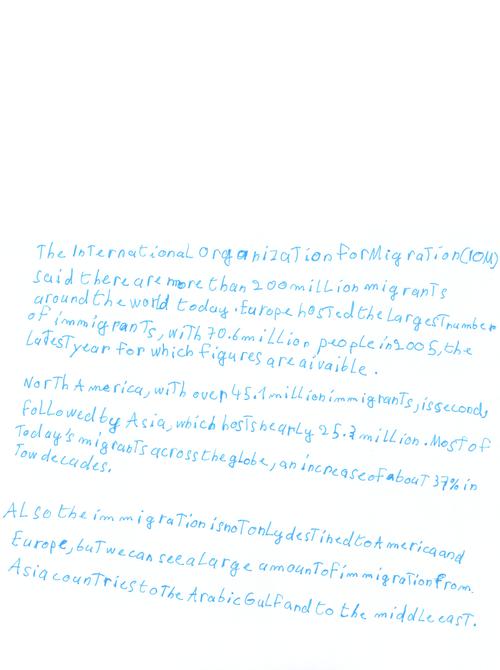 The International Organization for Migration (IOM)
said there are more than 200 million migrants
around the world today. Europe hosted the Largest number
of immigrants, with 70.6 million people in 2005, the
latest year for which figures are avaible.
North America, with over 45.1 million immigrants, is second,
followed by Asia, which hosts nearly 25.3 million. Most of
Today's migrants across the globe, an increase of about 37% in
Tow decades.
Also the immigration is not only destined to America and
Europe, but we can see a large amount of immigration from
Asia countries to the Arabic Gulf and to the middle east.